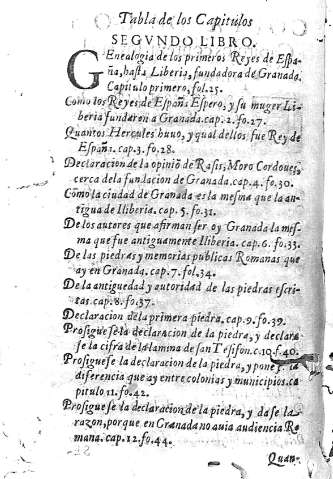 Tabla de los Capitulos
SEGVNDO LIBRO.
GEnealogia de los primeros Reyes de Espa-
ña, hasta Liberia, fundadora de Granada.
Capitulo primero, fol.25.
Como los Reyes de España Espero, y su muger Li-
beria fundaron a Granada. cap. 2. fo.27.
Quantos Hercules huuo, y qual dellos fue Rey de
España. cap.3. fo.28.
Declaracion de la opiniõ de Rasis, Moro Cordoues,
cerca de la fundacion de Granada. cap.4. fo.30.
Cõmo la ciudad de Granada es la mesma que la an-
tigua de Iliberia. cap. 5. fo.31.
De los autores que afirman ser oy Granada la mes-
ma que fue antiguamente Iliberia. cap.6. fo.33.
De las piedras y memorias publicas Romanas que
ay en Granada. cap.7. fol.34.
De la antiguedad y autoridad de las piedras escri-
tas. cap.8. fo.37.
Declaracion de la primera piedra. cap.9. fo.39.
Prosigue se la declaracion de la piedra, y declara
se la cifra de la lamina de san Tesifon. c.10. f.40.
Prosigue se la declaracion de la piedra, y pone se la
diferencia que ay entre colonias y municipios. ca
pitulo 11. fo.42.
Prosigue se la declaracion de la piedra, y da se la
razon, porque en Granada no auia audiencia Ro
mana. cap.12. fo.44.
Quan-